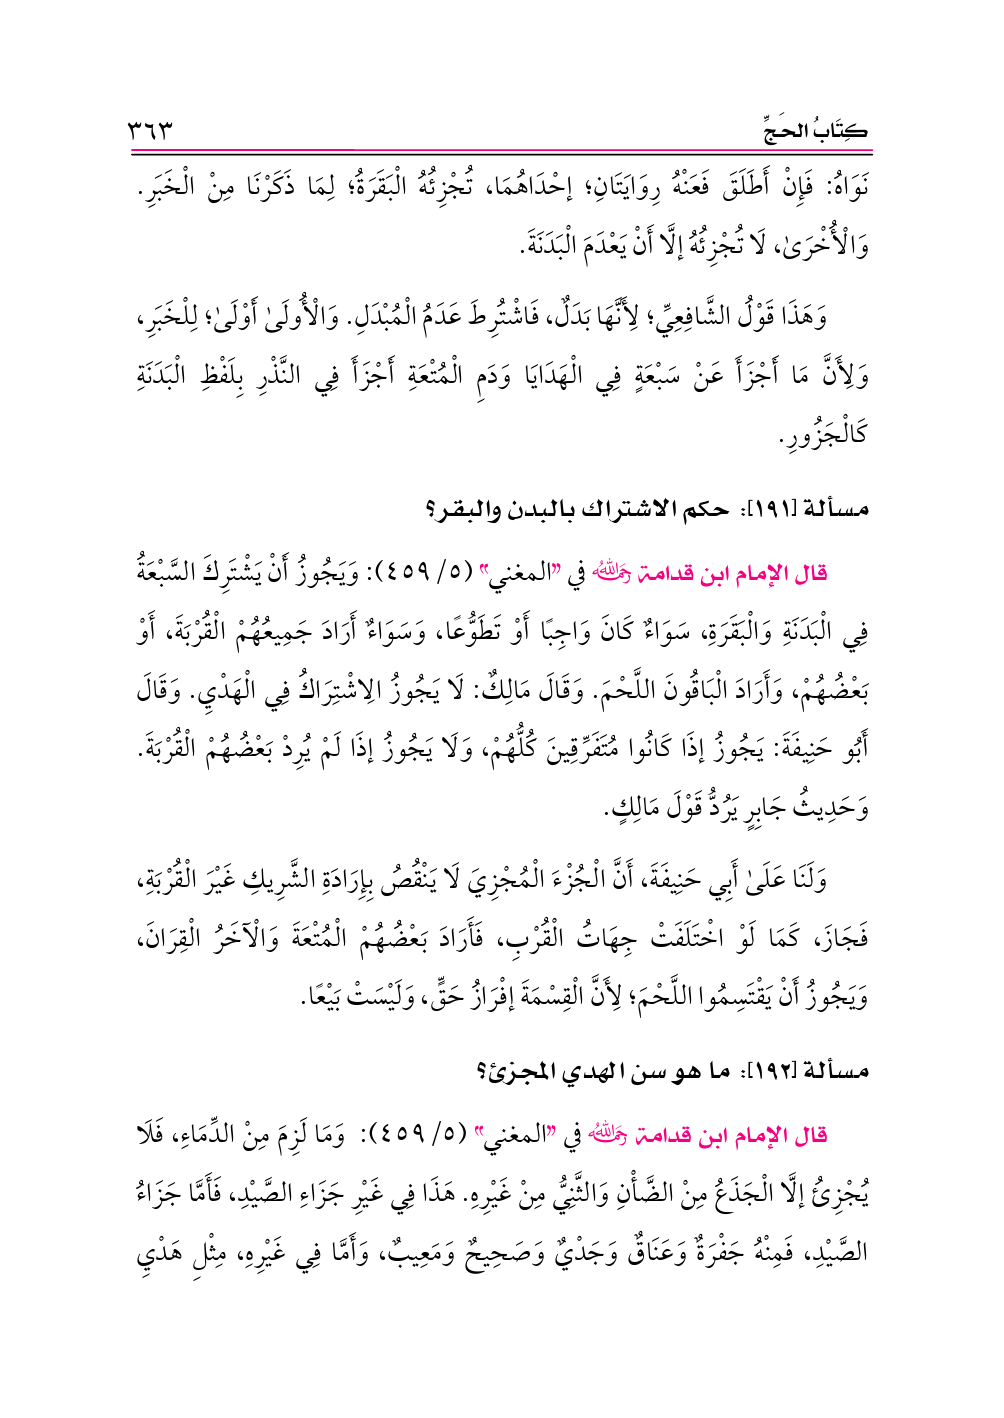 كِتَابُ الحَجِّ ٣٦٣
نَوَاهُ: فَإِنْ أَطْلَقَ فَعَنْهُ رِوَايَتَانِ؛ إحْدَاهُمَا، تُجْزِئُهُ الْبَقَرَةُ؛ لِمَا ذَكَرْنَا مِنْ الْخَبَرِ.
وَالْأُخْرَىٰ، لَا تُجْزِئُهُ إلَّا أَنْ يَعْدَمَ الْبَدَنَةَ.
وَهَذَا قَوْلُ الشَّافِعِيِّ؛ لِأَنَّهَا بَدَلٌ، فَاشْتُرِطَ عَدَمُ الْمُبْدَلِ. وَالْأُولَىٰ أَوْلَىٰ؛ لِلْخَبَرِ،
وَلِأَنَّ مَا أَجْزَأَ عَنْ سَبْعَةٍ فِي الْهَدَايَا وَدَمِ الْمُتْعَةِ أَجْزَأَ فِي النَّذْرِ بِلَفْظِ الْبَدَنَةِ
كَالْجَزُورِ.
مسألة [١٩١]: حكم الاشتراك بالبدن والبقر؟
قال الإمام ابن قدامة رحمه الله في "المغني" (٥/ ٤٥٩): وَيَجُوزُ أَنْ يَشْتَرِكَ السَّبْعَةُ
فِي الْبَدَنَةِ وَالْبَقَرَةِ، سَوَاءٌ كَانَ وَاجِبًا أَوْ تَطَوُّعًا، وَسَوَاءٌ أَرَادَ جَمِيعُهُمْ الْقُرْبَةَ، أَوْ
بَعْضُهُمْ، وَأَرَادَ الْبَاقُونَ اللَّحْمَ. وَقَالَ مَالِكٌ: لَا يَجُوزُ الِاشْتِرَاكُ فِي الْهَدْيِ. وَقَالَ
أَبُو حَنِيفَةَ: يَجُوزُ إذَا كَانُوا مُتَفَرِّقِينَ كُلُّهُمْ، وَلَا يَجُوزُ إذَا لَمْ يُرِدْ بَعْضُهُمْ الْقُرْبَةَ.
وَحَدِيثُ جَابِرٍ يَرُدُّ قَوْلَ مَالِكٍ.
وَلَنَا عَلَىٰ أَبِي حَنِيفَةَ، أَنَّ الْجُزْءَ الْمُجْزِيَ لَا يَنْقُصُ بِإِرَادَةِ الشَّرِيكِ غَيْرَ الْقُرْبَةِ،
فَجَازَ، كَمَا لَوْ اخْتَلَفَتْ جِهَاتُ الْقُرْبِ، فَأَرَادَ بَعْضُهُمْ الْمُتْعَةَ وَالْآخَرُ الْقِرَانَ،
وَيَجُوزُ أَنْ يَقْتَسِمُوا اللَّحْمَ؛ لِأَنَّ الْقِسْمَةَ إفْرَازُ حَقٍّ، وَلَيْسَتْ بَيْعًا.
مسألة [١٩٢]: ما هو سن الهدي المجزئ؟
قال الإمام ابن قدامة رحمه الله في "المغني" (٥/ ٤٥٩): وَمَا لَزِمَ مِنْ الدِّمَاءِ، فَلَا
يُجْزِئُ إلَّا الْجَذَعُ مِنْ الضَّأْنِ وَالثَّنِيُّ مِنْ غَيْرِهِ. هَذَا فِي غَيْرِ جَزَاءِ الصَّيْدِ، فَأَمَّا جَزَاءُ
الصَّيْدِ، فَمِنْهُ جَفْرَةٌ وَعَنَاقٌ وَجَدْيٌ وَصَحِيحٌ وَمَعِيبٌ، وَأَمَّا فِي غَيْرِهِ، مِثْلِ هَدْيِ